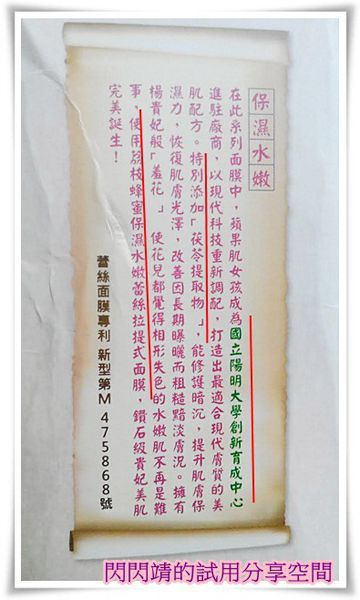 保濕水嫩
在此系列面膜中，蘋果肌女孩成為國立陽明大學創新育成中心
進駐廠商，以現代科技重新調配，打造出最適合現代膚質的美
肌配方。特別添加「茯苓提取物」，能修護暗沉，提升肌膚保
濕力，恢復肌膚光澤，改善因長期曝曬而粗糙黯淡膚況。擁有
楊貴妃般「羞花」，使花兒都覺得相形失色的水嫩肌不再是難
事，使用荔枝蜂蜜保濕水嫩蕾絲拉提式面膜，鑽石級貴妃美肌
完美誕生！
蕾絲面膜專利 新型第M 475868號
閃閃靖的試用分享空間